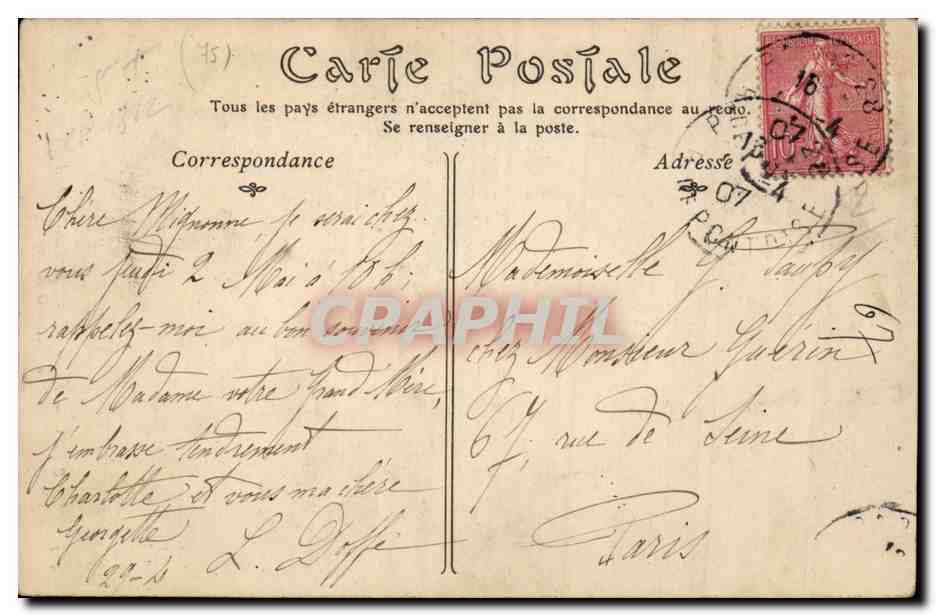 (75)
Carte Postale
Tous les pays étrangers n'acceptent pas la correspondance au recto.
Se renseigner à la poste.
Correspondance
Adresse
Chère Mignonne, je serai chez
vous jeudi 2 Mai à
rappelez-moi au bon souvenir
de Madame votre Grand Mère,
j'embrasse tendrement
Charlotte et vous ma chère
Georgette
29-4
L.
Mademoiselle G.
chez Monsieur Guérin
67, rue de Seine
Paris
67
10
16
07
07
CPAPHIL